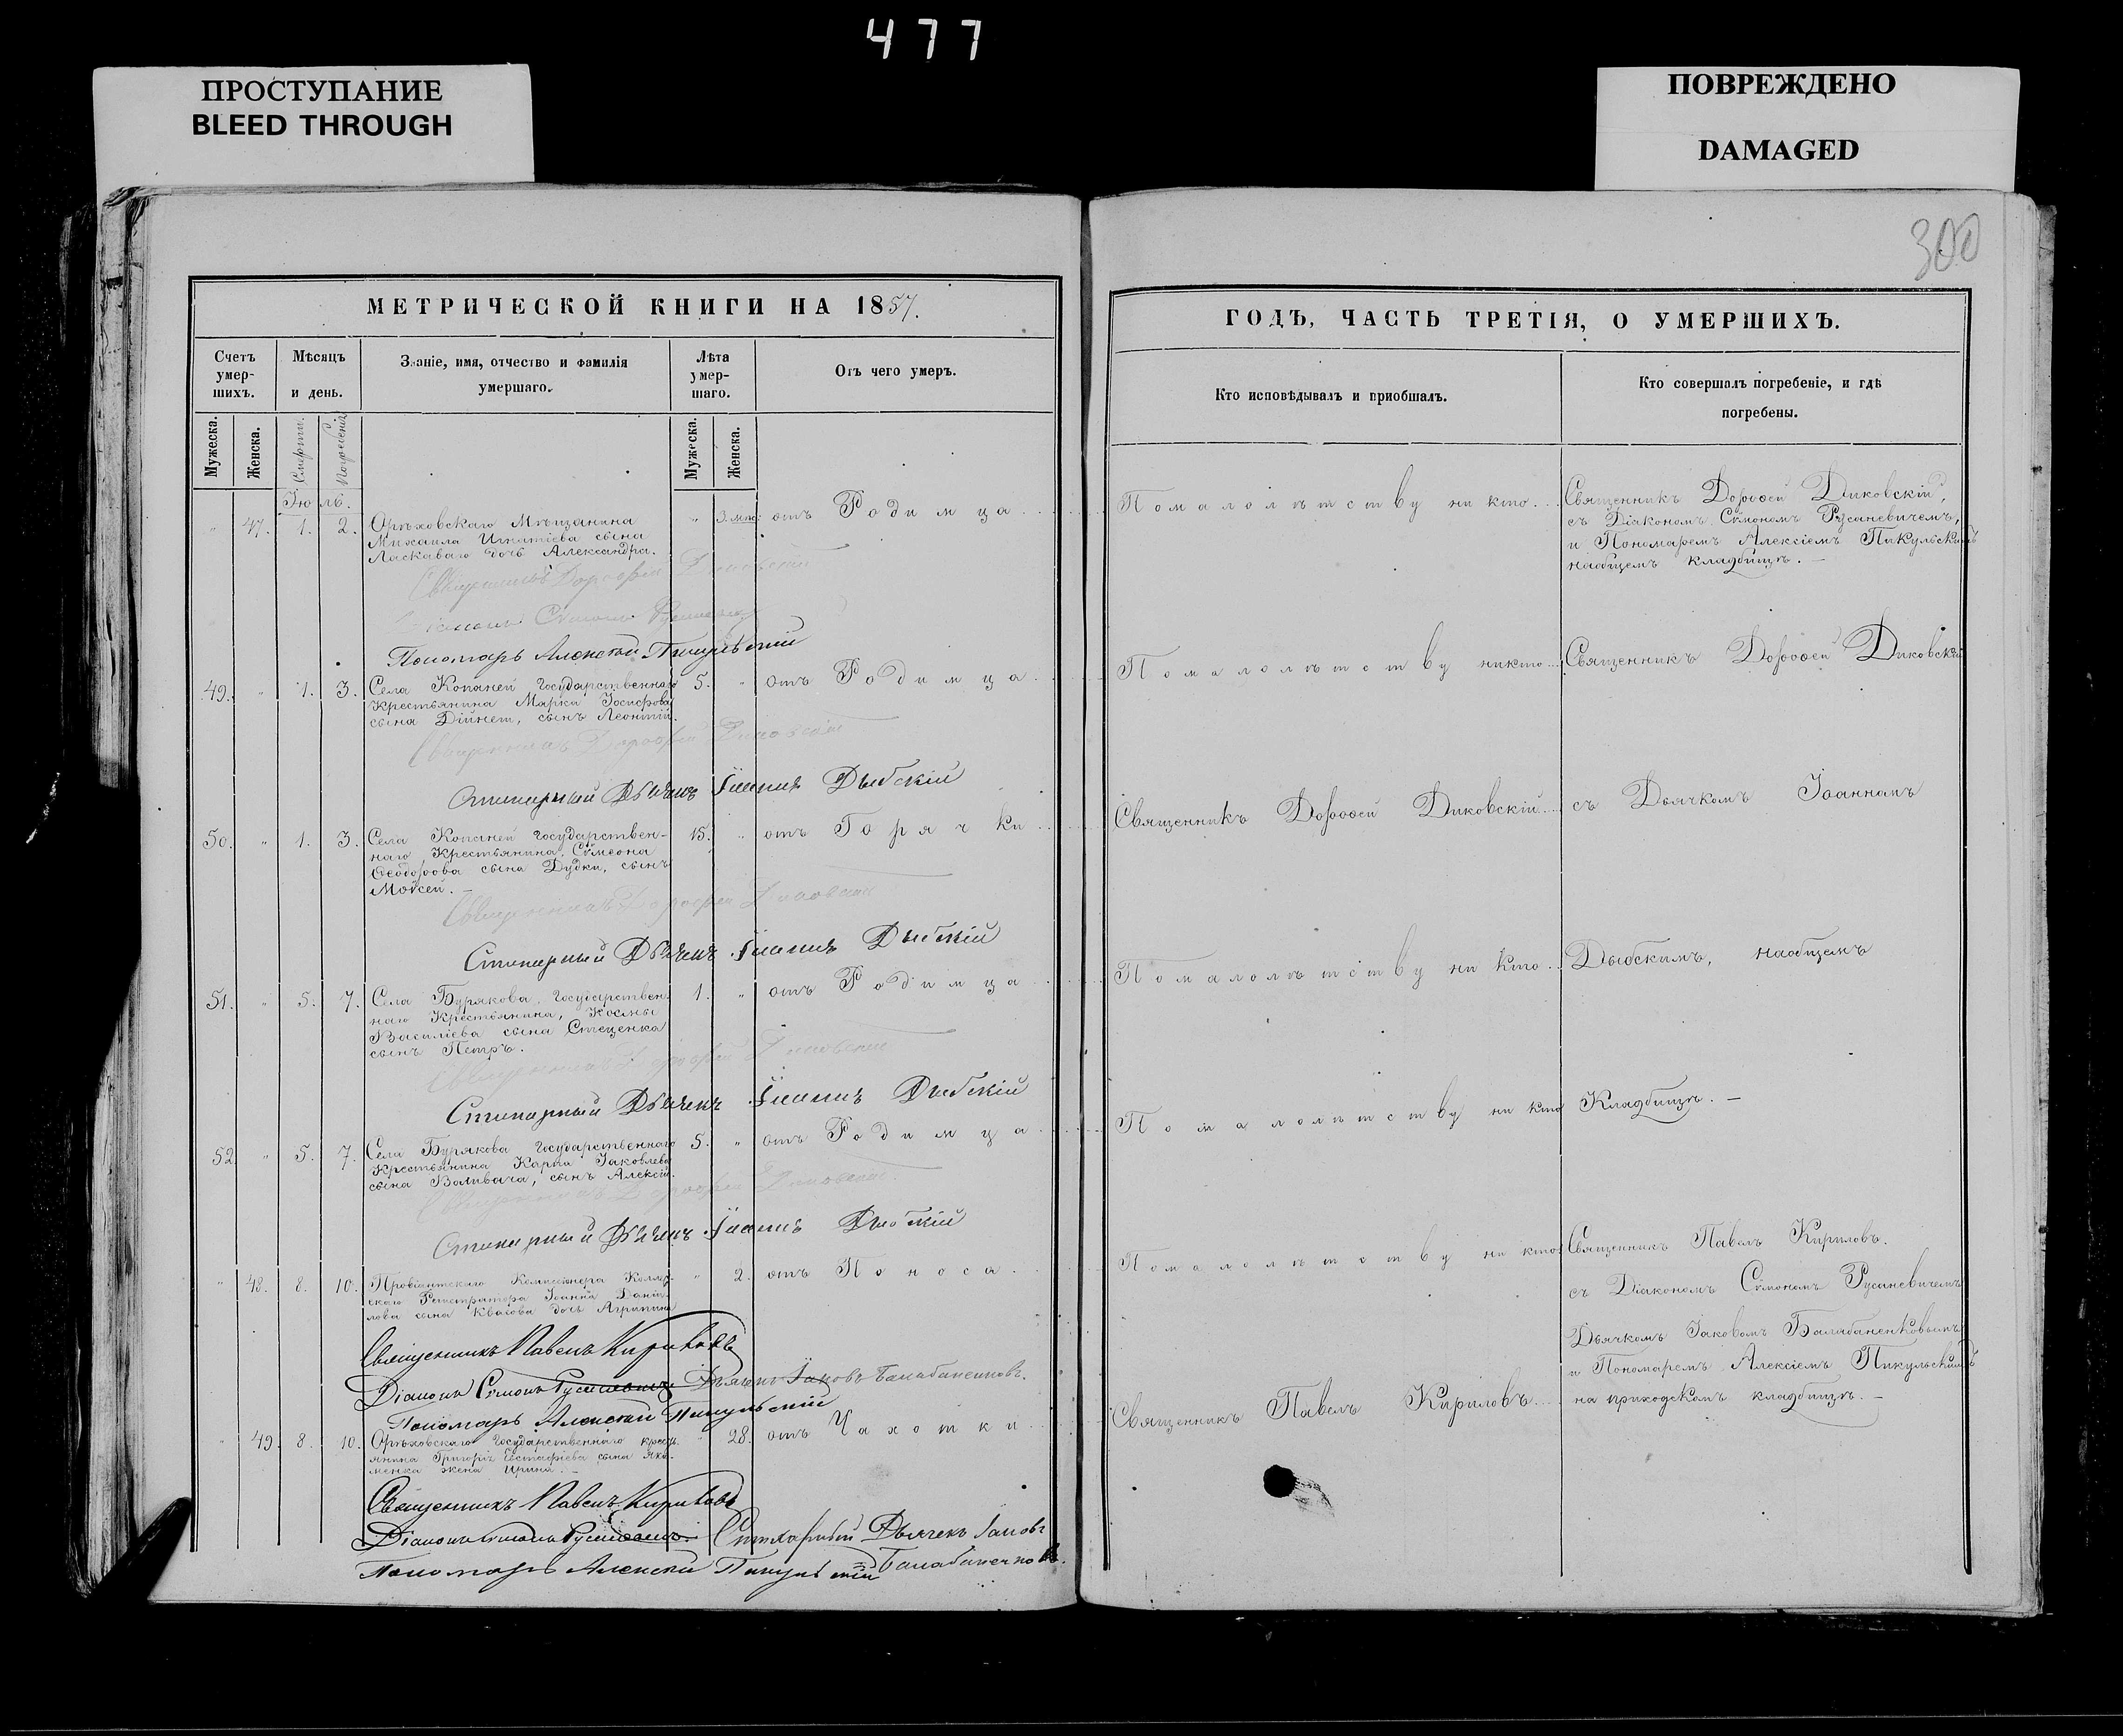 477
ПРОСТУПАНИЕ
BLEED THROUGH
ПОВРЕЖДЕНО
DAMAGED
300
МЕТРИЧЕСКОЙ КНИГИ НА 1857.
Счетъ умер-шихъ.
Мѣсяцъ и день.
Званіе, имя, отчество и фамилія умершаго.
Лѣта умер-шаго.
Отъ чего умеръ.
Мужеска.
Женска.
Смерти.
Погребенія
Мужеска.
Женска.
Іюль.
" 47. 1. 2. Орѣховскаго Мѣщанина " 3. мѣс: отъ Родимца
Михаила Игнатіева сына
Ласкаваго дочь Александра.
Священникъ Дорофей Диковскій
Діаконъ Сѵмонъ
Пономарь Алексѣй Пикульскій
49. " 1. 3. Села Копаней Государственнаго 5. " отъ Родимца
Крестьянина Марка Іосифова
сына Дійнеш, сынъ Леонтій.
Священникъ Дорофей Диковскій
Стихарный Дьячекъ Іоаннъ Дыбскій
50. " 1. 3. Села Копаней Государствен- 15. " отъ Горячки
наго Крестьянина Сѵмеона
Ѳеодорова сына Дудки, сынъ
Моѵсей.
Священникъ Дорофей Диковскій
Стихарный Дьячекъ Іоаннъ Дыбскій
51. " 5. 7. Села Бурякова Государствен- 1. " отъ Родимца
наго Крестьянина, Космы
Василіева сына Стеценка
сынъ Петръ.
Священникъ Дорофей Диковскій
Стихарный Дьячекъ Іоаннъ Дыбскій
52. " 5. 7. Села Бурякова Государственнаго 5. " отъ Родимца
Крестьянина Карпа Іаковлева
сына Валивача, сынъ Алексій.
Священникъ Дорофей Диковскій
Стихарный Дьячекъ Іоаннъ Дыбскій
" 48. 8. 10. Провіантскаго Коммисіонера Коллеж- " 2. отъ Поноса
скаго Регистратора Іоанна Даніи-
лова сына Квасова дочь Агрипина
Священникъ Павелъ Кириловъ
Діаконъ Сѵмонъ Русаневичъ Дьячекъ Іаковъ Балабаненковъ.
Пономарь Алексѣй Пикульскій
" 49. 8. 10. Орѣховскаго Государственнаго крест- " 28. отъ Чахотки
янина Григорія Евстафіева сына Яки-
менка жена Ирина.
Священникъ Павелъ Кириловъ
Діаконъ Сѵмонъ Русаневичъ Стихарный Дьячекъ Іаковъ
Пономарь Алексѣй Пикульскій Балабаненковъ.
ГОДЪ, ЧАСТЬ ТРЕТІЯ, О УМЕРШИХЪ.
Кто исповѣдывалъ и пріобщалъ.
Кто совершалъ погребеніе, и гдѣ погребены.
По малолѣтству ни кто. Священникъ Дороѳей Диковскій,
съ Діакономъ Сѵмономъ Русаневичемъ,
и Пономаремъ Алексіемъ Пикульскимъ
на общемъ кладбищѣ.
По малолѣтству никто. Священникъ Дороѳей Диковскій
Священникъ Дороѳей Диковскій съ Дьячкомъ Іоанномъ
По малолѣтству ни кто. Дыбскимъ, на общемъ
По малолѣтству ни кто Кладбищѣ.
По малолѣтству ни кто. Священникъ Павелъ Кириловъ.
съ Діакономъ Сѵмономъ Русаневичемъ
Дьячкомъ Іаковомъ Балабаненковымъ
и Пономаремъ Алексіемъ Пикульскимъ
Священникъ Павелъ Кириловъ на приходскомъ кладбищѣ.